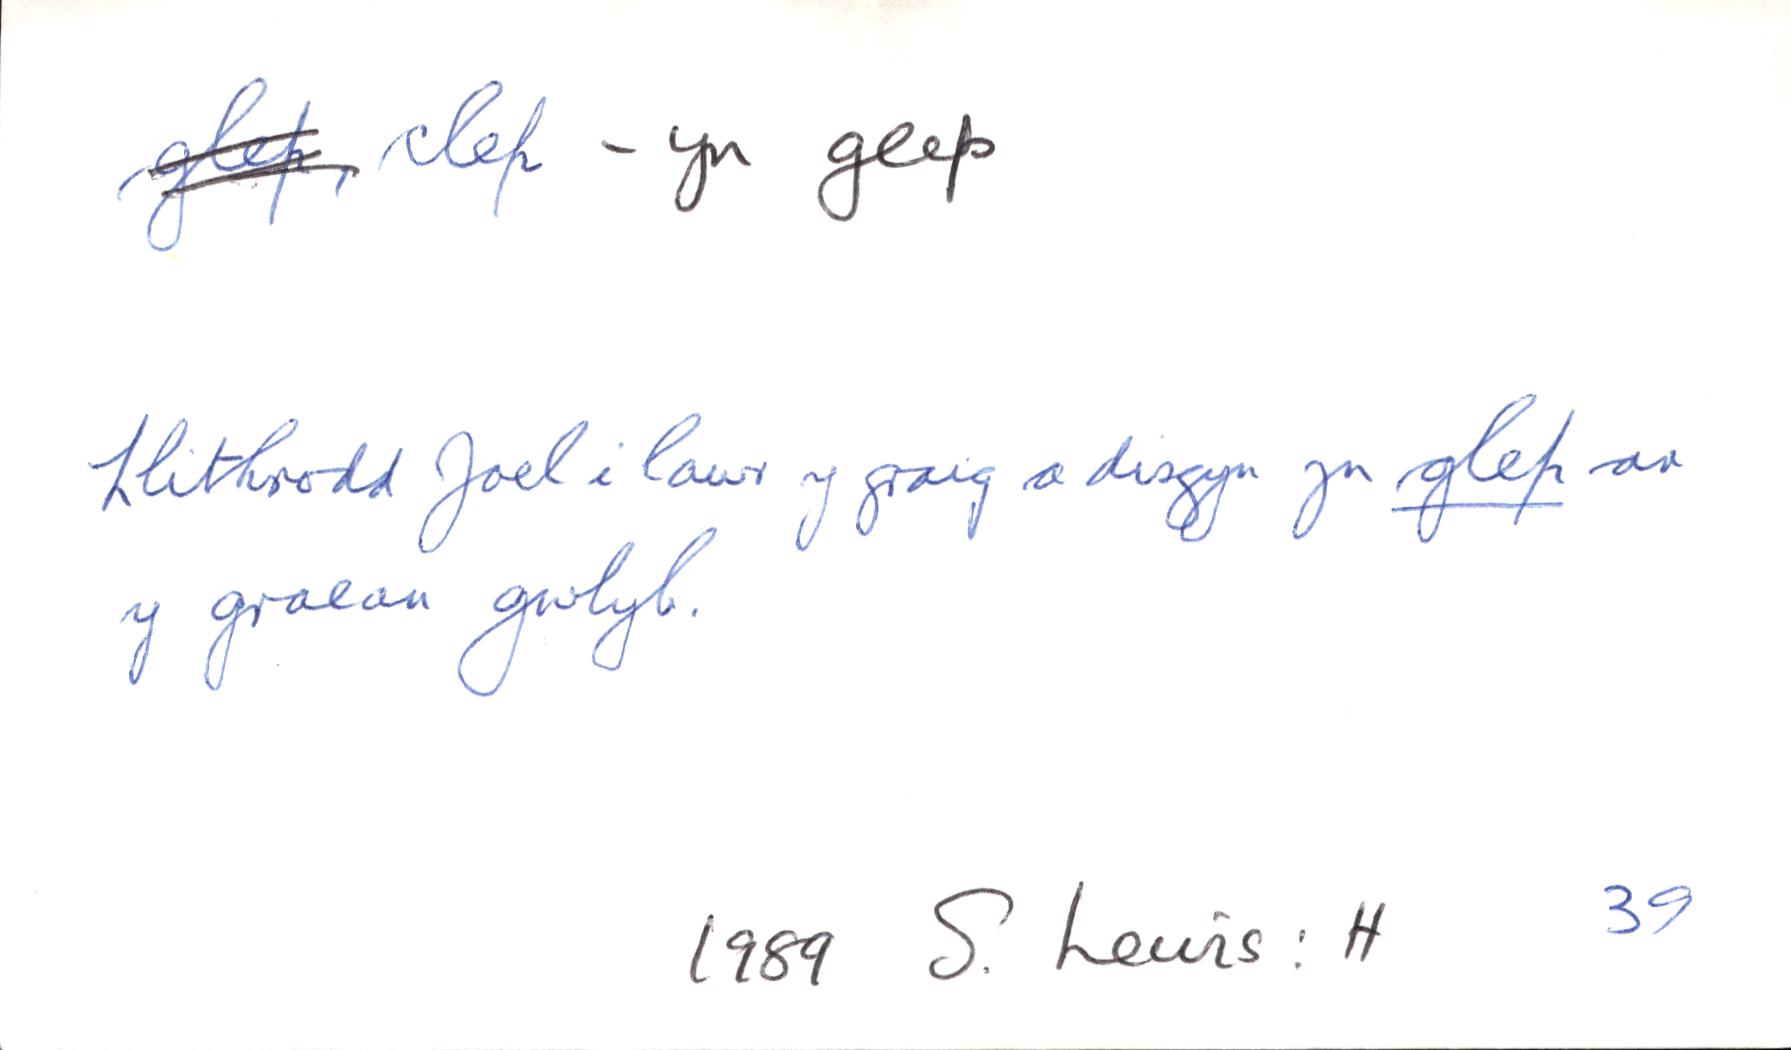 glep, clep - yn glep
Llithrodd Joel i lawr y graig a disgyn yn glep ar
y graean gwlyb.
1989 S. Lewis: H 39